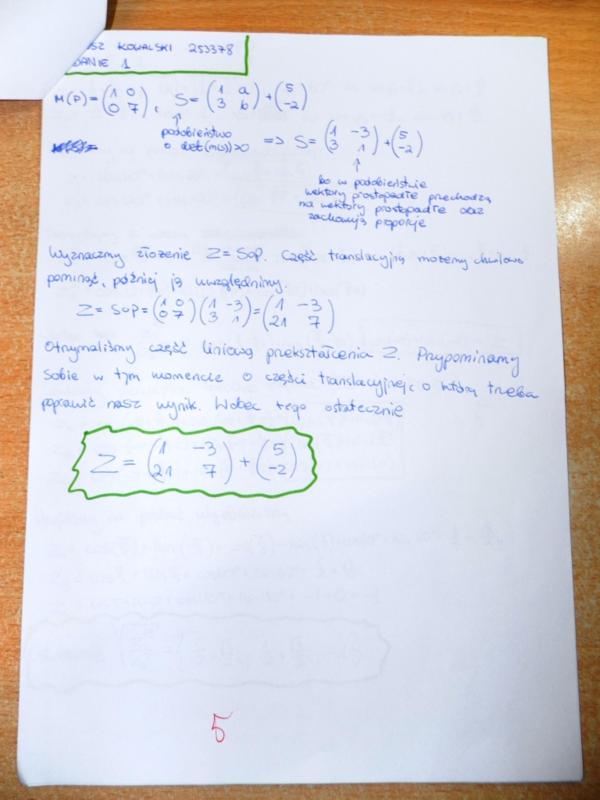 SZ KOWALSKI 253378
DANIE 1
M(P) = (1 0 / 0 7), S = (1 a / 3 b) + (5 / -2)
podobieństwo
o det(m(s))>0
=> S = (1 -3 / 3 1) + (5 / -2)
bo w podobieństwie
wektory prostopadłe przechodzą
na wektory prostopadłe oraz
zachowują proporcje
Wyznaczmy złożenie Z = S∘P. Część translacyjną możemy chwilowo
pominąć, później ją uwzględnimy.
Z = S∘P = (1 0 / 0 7) (1 -3 / 3 1) = (1 -3 / 21 7)
Otrzymaliśmy część liniową przekształcenia Z. Przypominamy
sobie w tym momencie o części translacyjnej, o którą trzeba
poprawić nasz wynik. Wobec tego ostatecznie
Z = (1 -3 / 21 7) + (5 / -2)
5